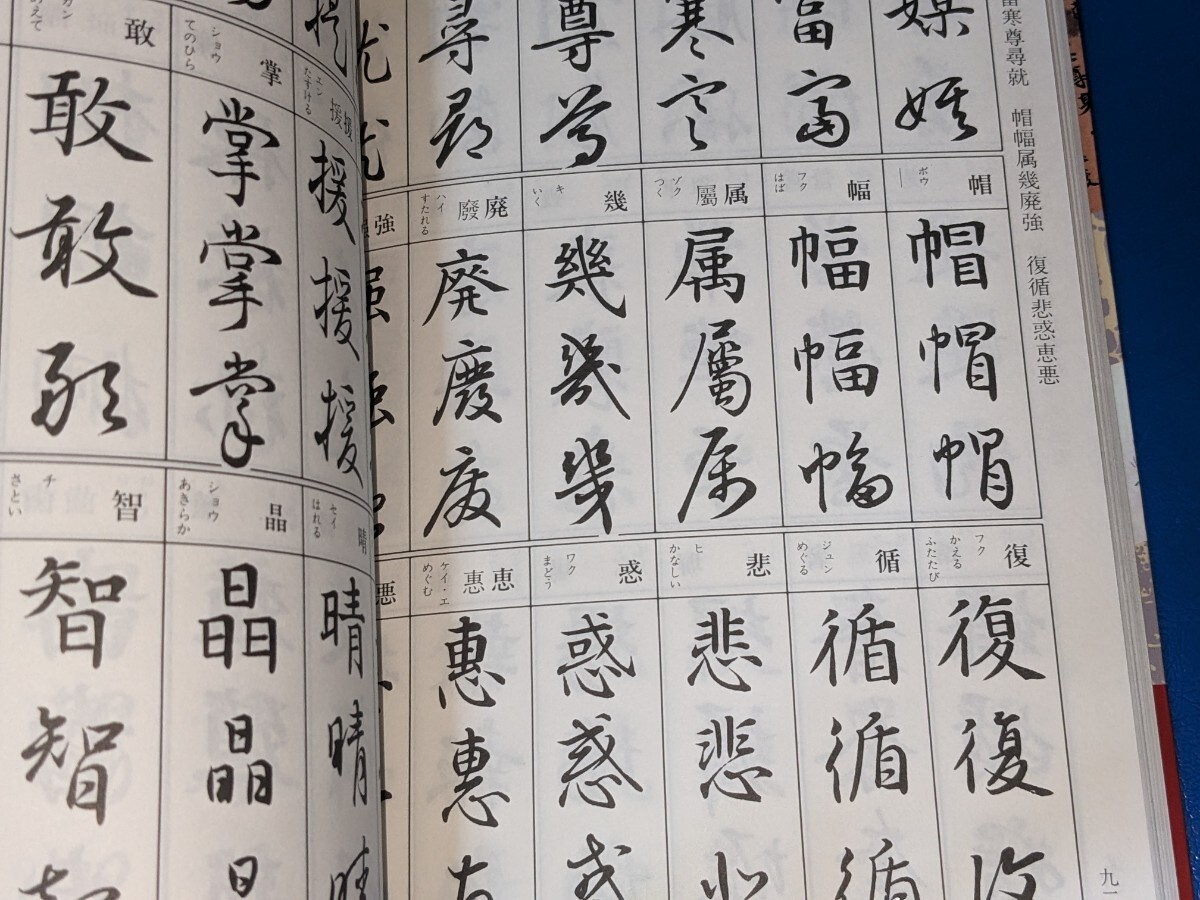 富寒尊尋就　帽幅属幾廃強　復循悲惑恵悪
媒
媒
富
富
寒
寒
尊
尊
尋
尋
就
就
帽
ボウ
帽
帽
帽
幅
フク
はば
幅
幅
幅
属
屬
ゾク
つく
属
屬
属
幾
キ
いく
幾
幾
幾
廃
廢
ハイ
すたれる
廃
廢
廃
強
强
强
復
フク
かえる
ふたたび
復
復
復
循
ジュン
めぐる
循
循
循
悲
ヒ
かなしい
悲
悲
惑
ワク
まどう
惑
惑
惑
恵
惠
ケイ・エ
めぐむ
恵
惠
悪
九
援
援
エン
たすける
援
援
援
掌
ショウ
てのひら
掌
掌
掌
敢
カン
あえて
敢
敢
敢
晴
セイ
はれる
晴
晴
晴
晶
ショウ
あきらか
晶
晶
智
チ
さとい
智
智